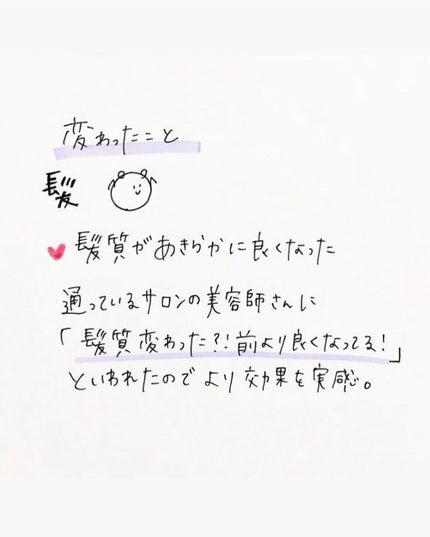 変わったこと
髪
髪質があきらかに良くなった
通っているサロンの美容師さんに
「髪質変わった?!前より良くなってる!」
といわれたのでより効果を実感。